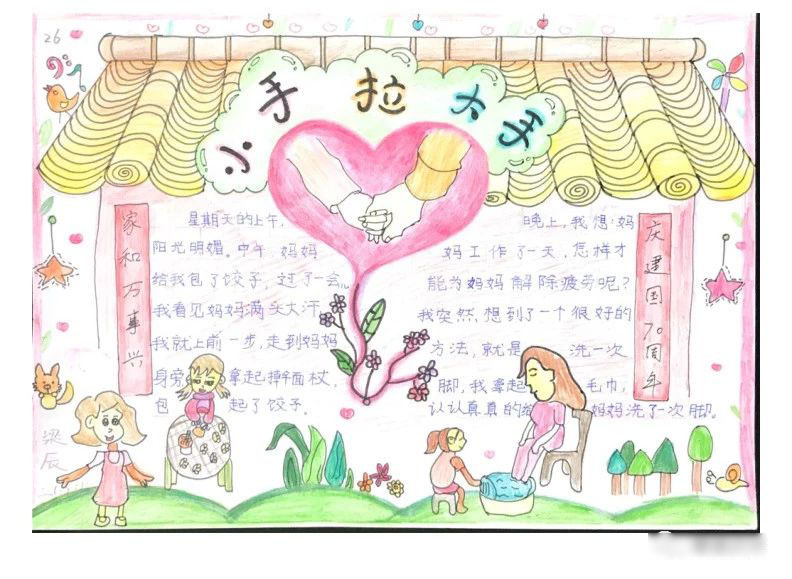 26
小手拉大手
家和万事兴
星期天的上午,
阳光明媚。中午 妈妈
给我包了饺子,过了一会儿
我看见妈妈满头大汗
我就上前一步,走到妈妈
身旁 拿起擀面杖,
包 起了饺子。
晚上,我想:妈
妈工作了一天,怎样才
能为妈妈解除疲劳呢?
我突然想到了一个很好的
方法,就是 洗一次
脚,我拿起 毛巾,
认认真真的给 妈妈洗了一次脚。
庆建国70周年
梁辰